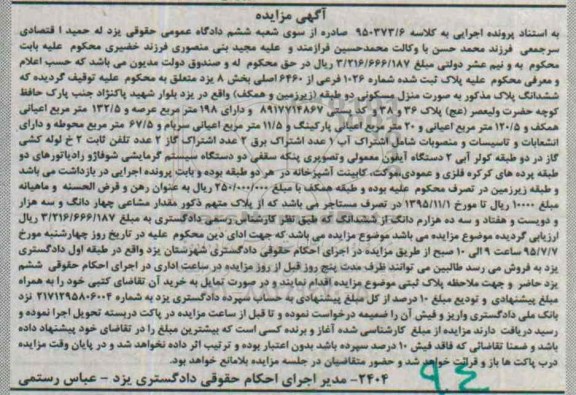 آگهی مزایده
به استناد پرونده اجرایی به کلاسه ۹۵۰۳۷۳/۶ صادره از سوی شعبه ششم دادگاه عمومی حقوقی یزد له حمید اقتصادی
سرجمعی فرزند محمد حسن با وکالت محمدحسین فرازمند و علیه مجید بنی منصوری فرزند خضیری محکوم علیه بابت
محکوم به و نیم عشر دولتی مبلغ ۳/۲۱۶/۶۶۶/۱۸۷ ریال در حق محکوم له و صندوق دولت مدیون می باشد که حسب اعلام
و معرفی محکوم علیه پلاک ثبت شده شماره ۱۰۲۶ فرعی از ۶۴۶۰ اصلی بخش ۸ یزد متعلق به محکوم علیه توقیف گردیده که
ششدانگ پلاک مذکور به صورت منزل مسکونی دو طبقه (زیرزمین و همکف) واقع در یزد بلوار شهید پاکنژاد جنب پارک حافظ
کوچه حضرت ولیعصر (عج) پلاک ۳۶ ستی ۸۹۱۷۷۱۴۸۶۷ و دارای ۱۹۸ متر مربع عرصه و ۱۳۲/۵ متر مربع اعیانی
همکف و ۱۲۰/۵ متر مربع اعیانی و ۲۰ متر مربع اعیانی پارکینگ و ۱۱/۵ متر مربع اعیانی سرپام و ۶۷/۵ متر مربع محوطه و دارای
انشعابات و تاسیسات و منصوبات شامل اشتراک آب ۲ عدد اشتراک برق ۲ عدد اشتراک گاز ۲ عدد تلفن ثابت ۲ خ لوله کشی
گاز در دو طبقه کولر آبی ۲ دستگاه آیفون معمولی وتصویری پنکه سقفی دو دستگاه سیستم گرمایشی شوفاژو رادیاتورهای دو
طبقه پرده های کرکره فلزی و عمودی،موکت، کابینت آشپزخانه در هر دو طبقه بوده و بابت پرونده اجرایی در بازداشت می باشد
و طبقه زیرزمین در تصرف محکوم علیه بوده و طبقه همکف با مبلغ ۲۵۰/۰۰۰/۰۰۰ ریال به عنوان رهن و قرض الحسنه و ماهیانه
مبلغ ۱۰۰۰۰ ریال تا مورخ ۱۳۹۵/۱۱/۱ در تصرف مستاجر می باشد که از پلاک متهم ذکور مقدار مشاعی چهار دانگ و سه هزار
و دویست و هفتاد و سه ده هزارم دانگ از ششدانگ که طبق نظر کارشناس رسمی دادگستری به مبلغ ۳/۲۱۶/۶۶۶/۱۸۷ ریال
ارزیابی گردیده موضوع مزایده می باشد موضوع مزایده می باشد که جهت ادای دین محکوم علیه در تاریخ روز چهارشنبه مورخ
۹۵/۷/۷ ساعت ۹ الی ۱۰ صبح از طریق مزایده در اجرای احکام حقوقی دادگستری شهرستان یزد واقع در طبقه اول دادگستری
یزد به فروش می رسد طالبین می توانند ظرف مدت پنج روز قبل از روز مزایده در ساعت اداری در اجرای احکام حقوقی ششم
یزد حاضر و جهت ملاحظه پلاک ثبتی موضوع مزایده اقدام نمایند و در صورت تمایل به خرید آن تقاضای کتبی خود را به همراه
مبلغ پیشنهادی و تودیع مبلغ ۱۰ درصد از کل مبلغ پیشنهادی به حساب سپرده دادگستری یزد به شماره ۲۱۷۱۲۹۵۸۰۶۰۰۴ نزد
بانک ملی دادگستری واریز و فیش آن را ضمیمه درخواست نموده و تا قبل از ساعت مزایده در پاکت دربسته تحویل اجرا نموده و
رسید دریافت دارند مزایده از مبلغ کارشناسی شده آغاز و برنده کسی است که بیشترین مبلغ را در تقاضای خود پیشنهاد داده
باشد و ضمنا تقاضائی که فاقد فیش ۱۰ درصد سپرده باشد بدون اعتبار بوده و ترتیب اثر داده نخواهد شد و در پایان وقت مزایده
درب پاکت ها باز و قرائت خواهد شد و حضور متقاضیان در جلسه مزایده بلامانع خواهد بود.
۲۴۰۴- مدیر اجرای احکام حقوقی دادگستری یزد - عباس رستمی
۹۴